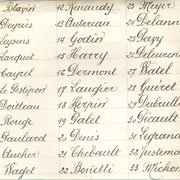 Blazin 12 Renaudy 23 Meyer
Dupuis 13 Autereau 24 Delann
Leysens 14 Godin 25 Gavy
Jacquet 15 Harry 26 Deleuren
Cayrel 16 Dermont 27 Watel
Le Postipon 17 Laugier 28 Guiret
Doitteau 18 Herpin 29 Dubrulle
Rouge 19 Galet 30 Gicault
Gaulard 20 Denis 31 Legrand
Aucher 21 Thébault 32 Justema
Waget 22 Bonelli 33 Michon